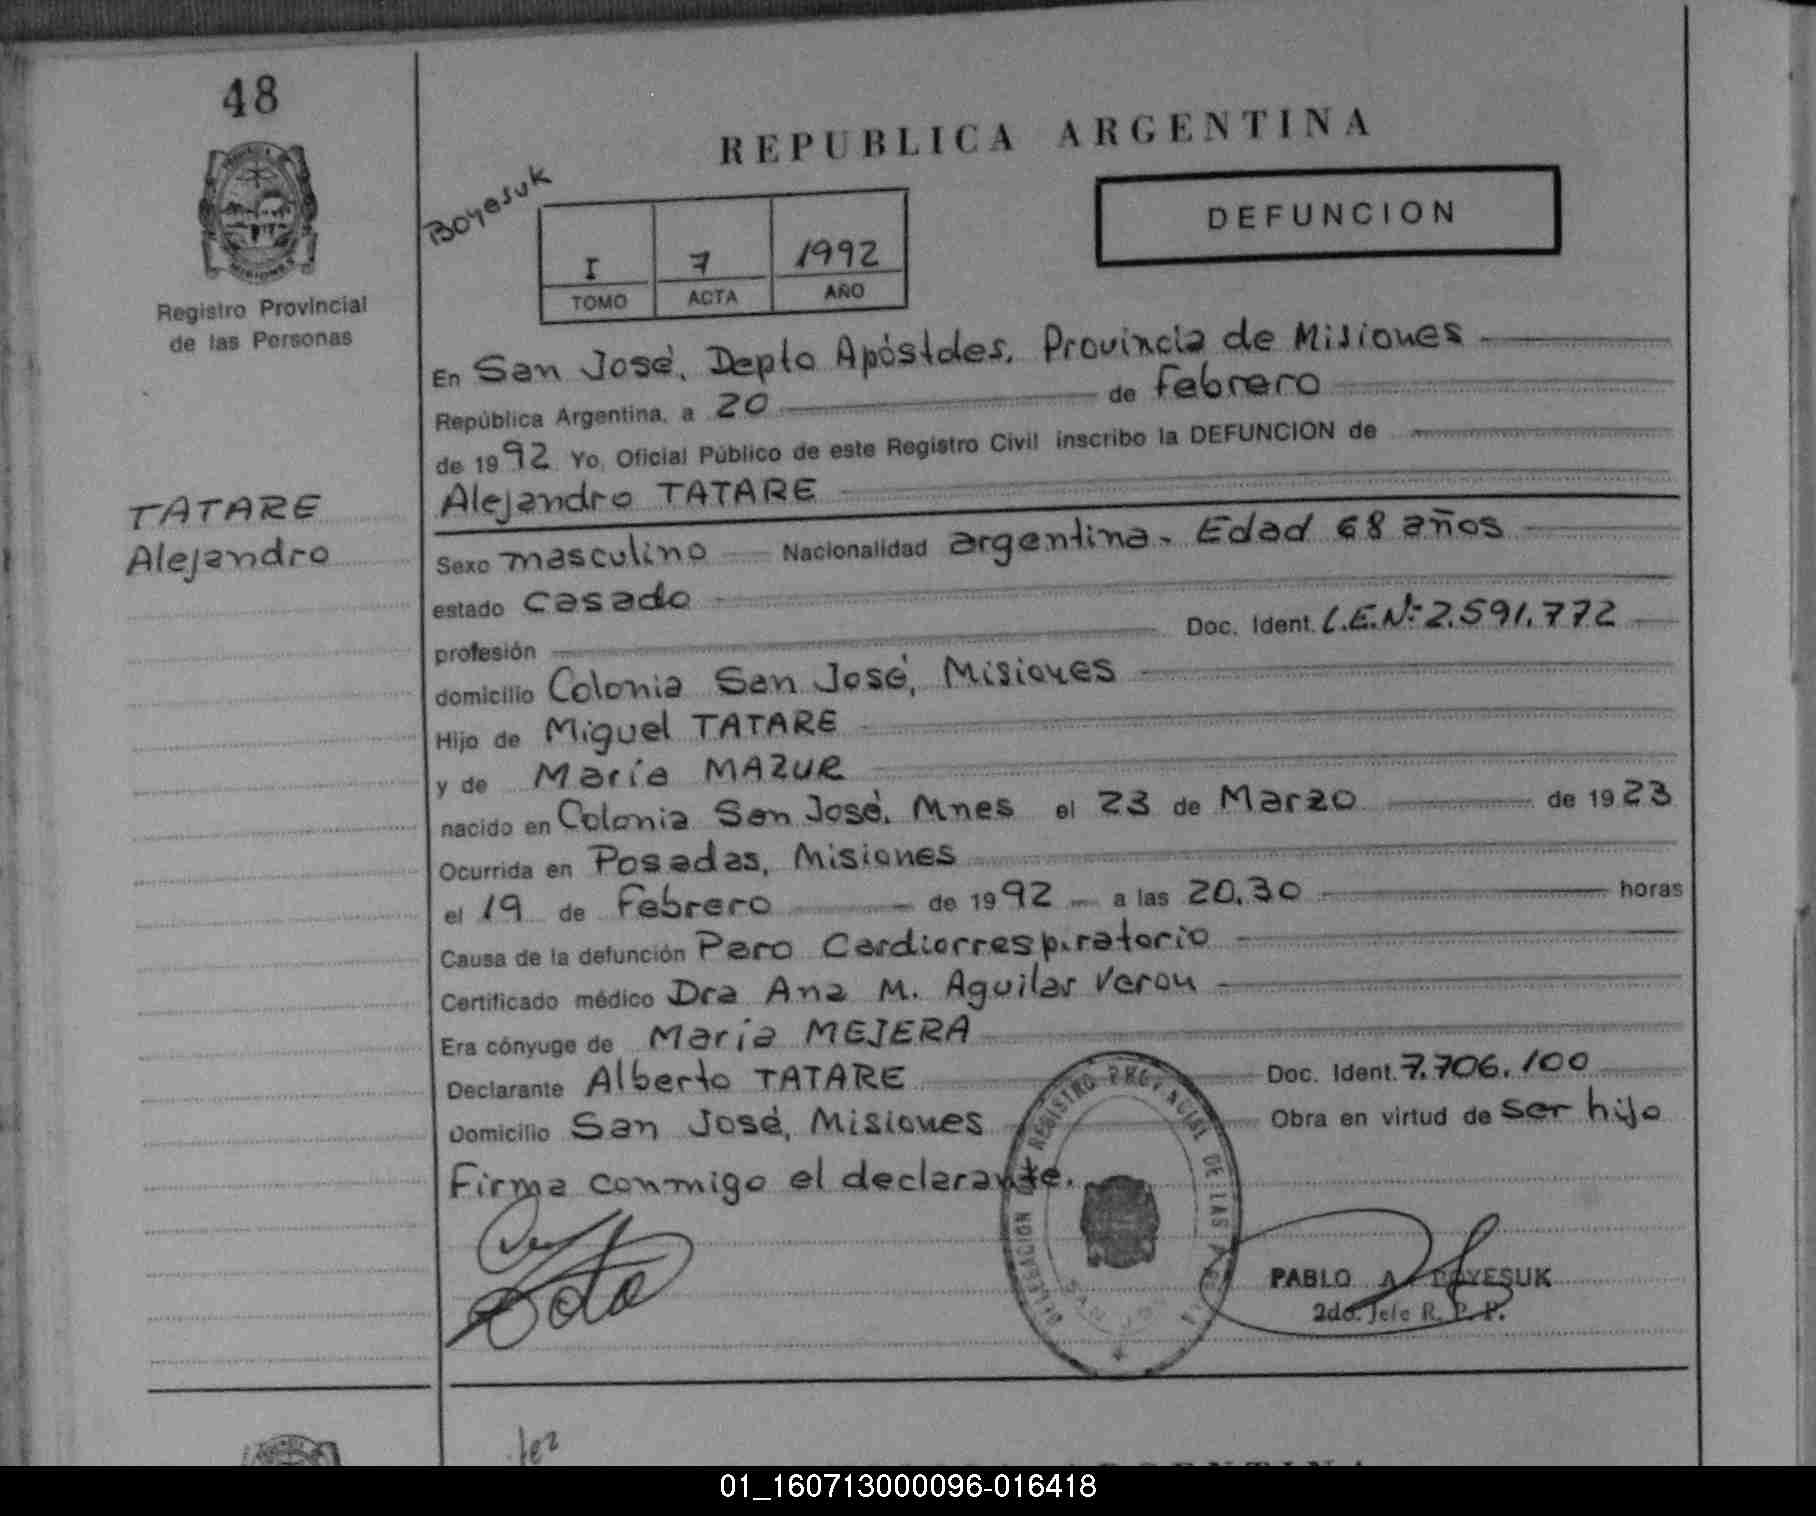 48
REPUBLICA ARGENTINA
Boyesuk
DEFUNCION
I 7 1992
TOMO ACTA AÑO
Registro Provincial
de las Personas
En San José, Depto Apóstoles. Provincia de Misiones
República Argentina, a 20 de Febrero
de 1992 Yo, Oficial Público de este Registro Civil inscribo la DEFUNCION de
Alejandro TATARE
TATARE
Alejandro
Sexo masculino Nacionalidad argentina. Edad 68 años
estado casado
profesión Doc. Ident. L.E.Nº 2.591.772
domicilio Colonia San José, Misiones
Hijo de Miguel TATARE
y de María MAZUR
nacido en Colonia San José. Mnes el 23 de Marzo de 1923
Ocurrida en Posadas, Misiones
el 19 de Febrero de 1992 a las 20.30 horas
Causa de la defunción Paro Cardiorrespiratorio
Certificado médico Dra Ana M. Aguilar Veron
Era cónyuge de María MEJERA
Declarante Alberto TATARE Doc. Ident. 7.706.100
Domicilio San José, Misiones Obra en virtud de ser hijo
Firma conmigo el declarante.
DELEGACION REGISTRO PROVINCIAL DE LAS
PABLO A. BOYESUK
2do. Jefe R. P. P.
01_160713000096-016418